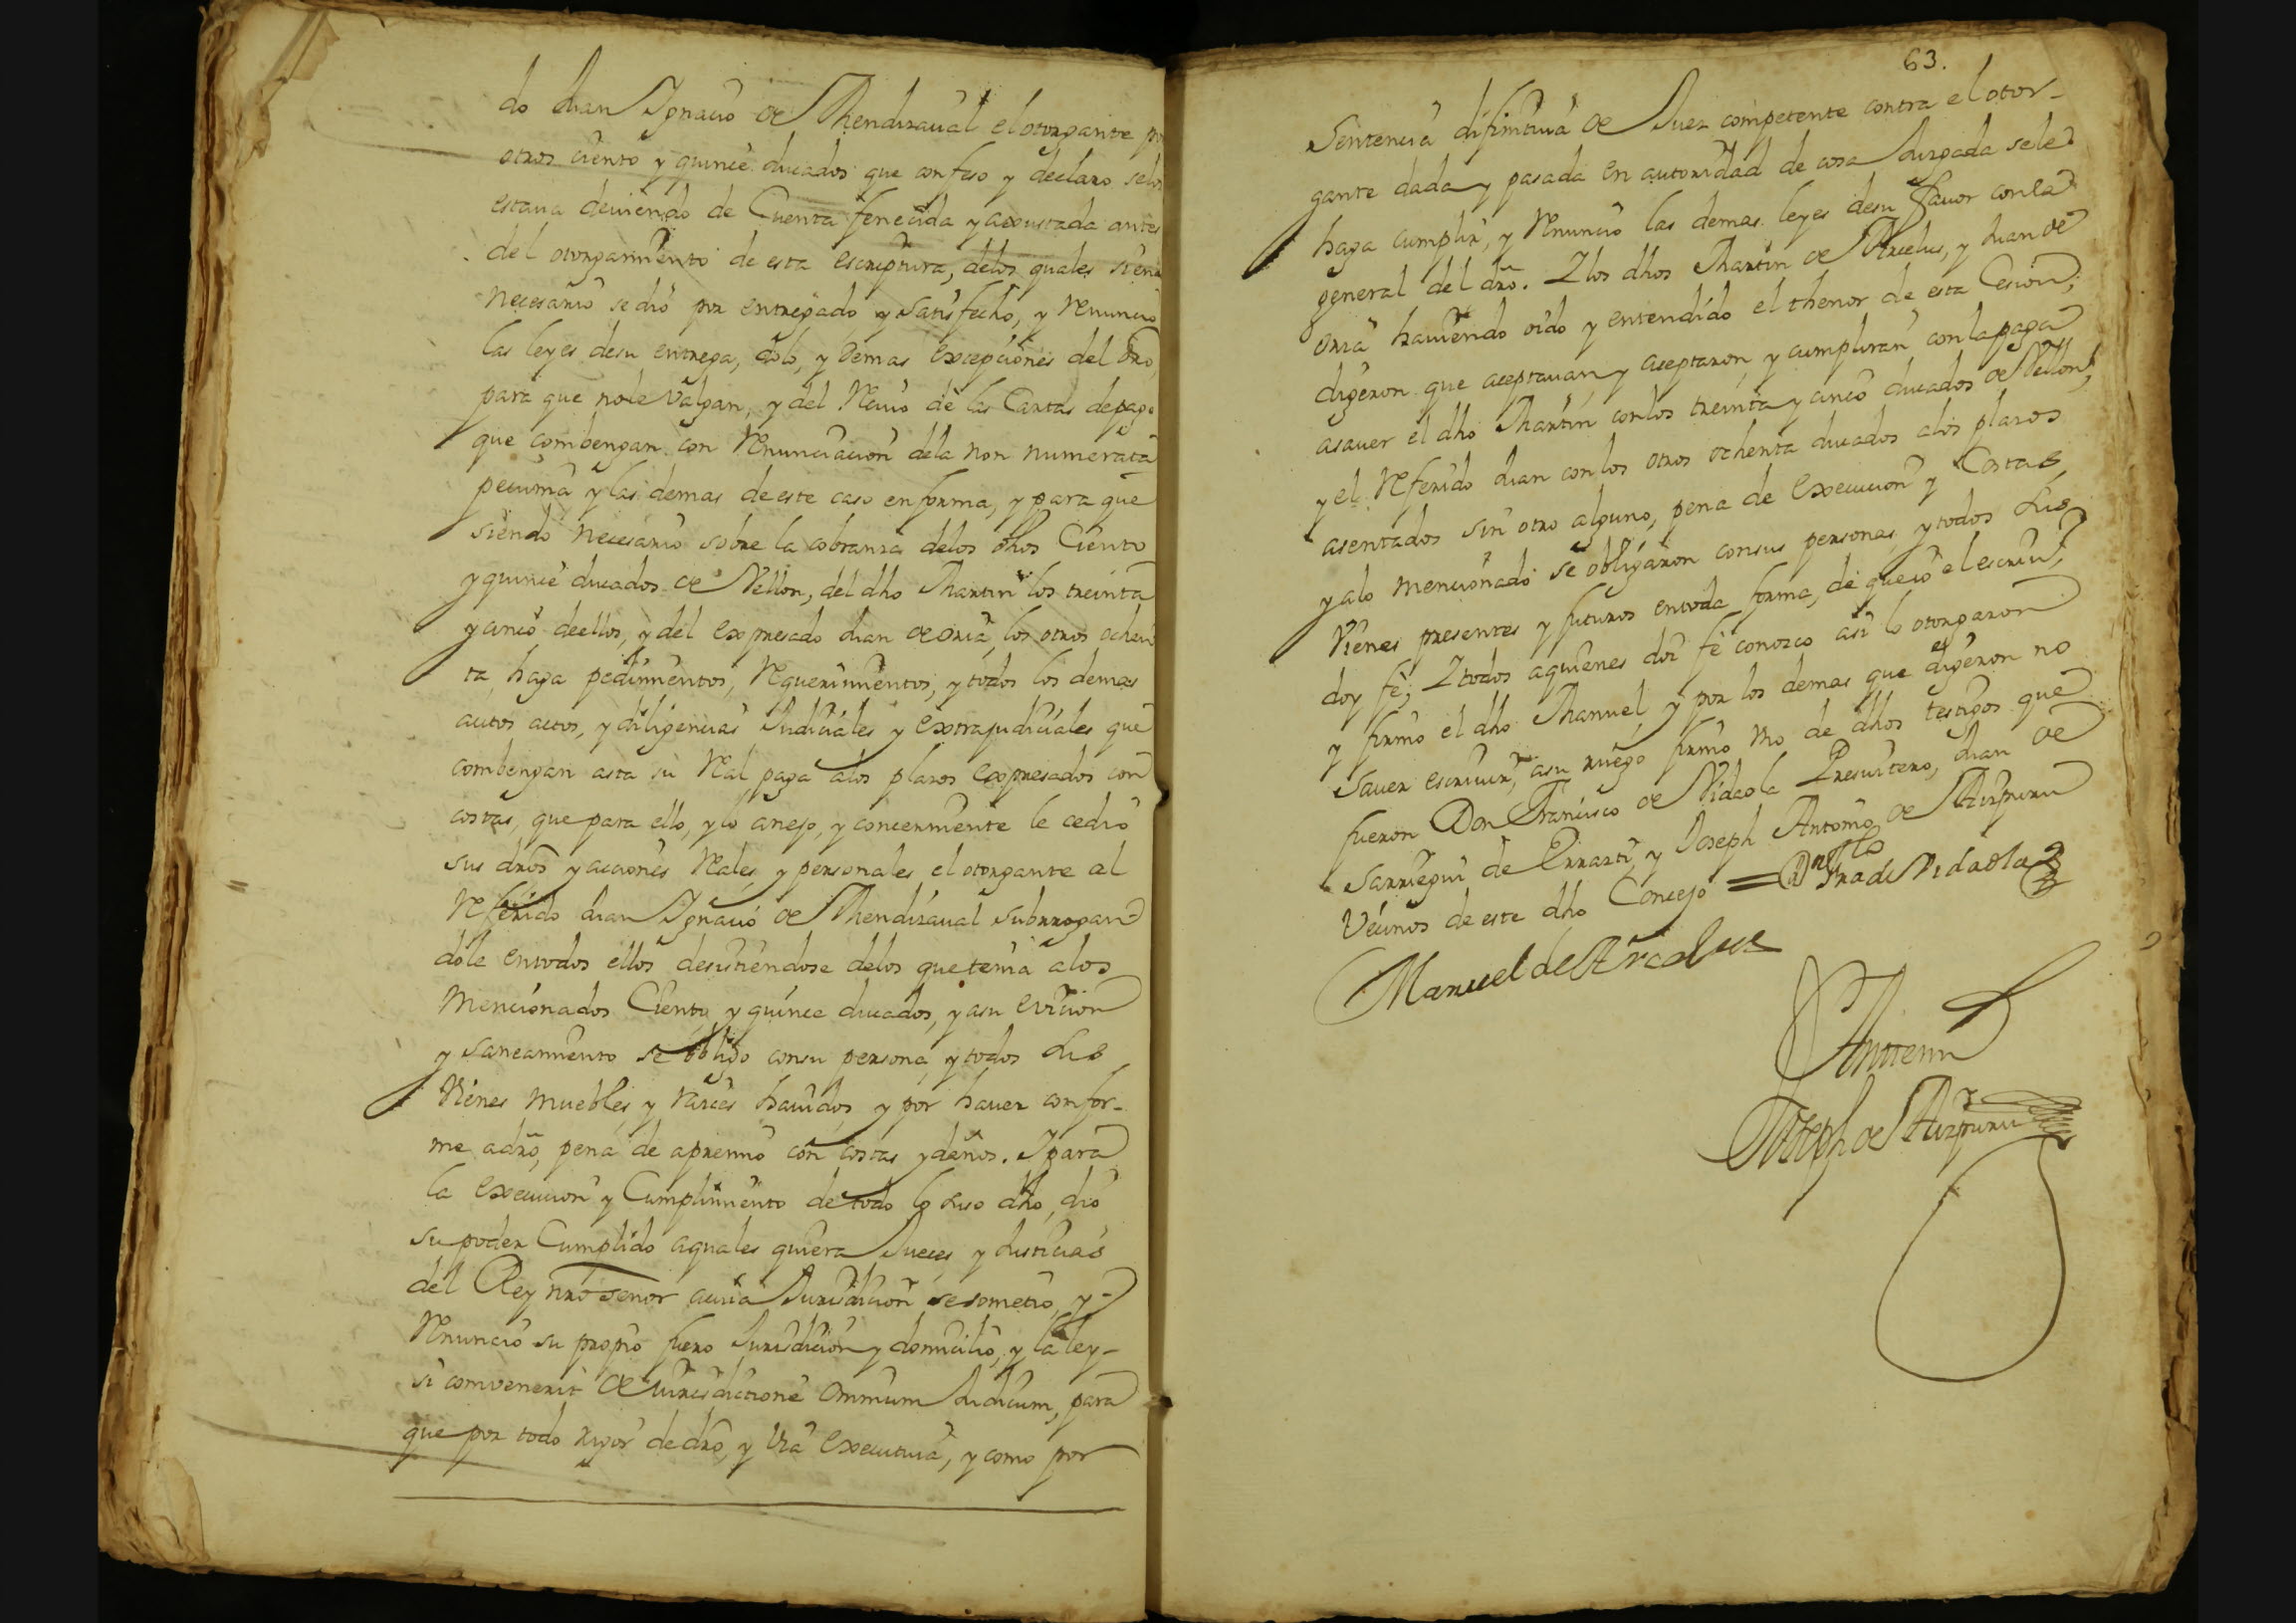 do Juan Ignacio de Mendizaual el otorgante por
otros ciento y quince ducados que confeso y declaro selos
estaua deuiendo de Cuenta fenecida y axustada antes
del otorgamiento de esta escriptura, delos quales siendo
necesario se dió por entregado y satisfecho, y renuncio
las leyes desu entrega, dolo, y demas excepciones del dro,
para que nole Valgan, y del reciuo de las Cartas depago
que combengan con renunciacion dela non numerata
pecunia y las demas de este caso en forma, y para que
siendo necesario sobre la cobranza delos dhos Ciento
y quince ducados de Vellon, del dho Martin los treinta
y cinco deellos, y del expresado Juan de oria, los otros ochen
ta, haga pedimientos, requerimientos, y todos los demas
autos actos, y diligencias Judiciales y extrajudiciales que
combengan asta su real paga alos plazos expresados con
costas, que para ello, y lo anejo, y concerniente le cedió
sus dros y acciones reales y personales el otorgante al
referido Juan Ignacio de Mendizaual subrrogan
dole entodos ellos desistiendose delos que tenia alos
mencionados Ciento y quince ducados, y asu evicion
y saneamiento se obligo consu persona, y todos sus
Vienes muebles, y raices hauidos, y por hauer confor-
me adro, pena de apremio con costas y daños. I para
la execucion y Cumplimiento de todo lo suso dho, dio
su poder Cumplido aquales quiera Jueces y Justicias
del Rey nro señor acuia Jurisdicion se sometio, y
renunció su propio fuero Jurisdicion y domicilio, y la ley
si convenerit de iurisdictione omnium Judicum, para
que por todo rigor de dro, y via executiua, y como por
63.
Sentencia difinitiua de Juez competente contra el otor-
gante dada y pasada en autoridad de cosa Juzgada sele
haga cumplir, y renuncio las demas leyes desu fauor conla
general del dro. I los dhos Martin de Arcelus, y Juan de
oria hauiendo oido y entendido el thenor de esta Cesion;
digeron que aceptauan y aceptaron, y cumpliran conla paga
asauer el dho Martin conlos treinta y cinco ducados de Vellon;
y el referido Juan con los otros ochenta ducados alos plazos
asentados sin otro alguno, pena de execucion y Costas,
y alo mencionado se obligaron consus personas, y todos sus
Vienes presentes y futuros entoda forma, de que io el escriu.º
doy fé; I todos aquienes doi fé conozco asi lo otorgaron
y firmó el dho Manuel, y por los demas que digeron no
sauer escriuir, asu ruego firmó uno de dhos testigos que
fueron Don Francisco de Vidaola Presuitero, Juan de
Sarriegui de Errazti, y Joseph Antonio de Aizpuru
Vecinos de este dho Concejo = Dn Franco de Vidaola
Manuel de Arcelus
Antemi
Joseph de Aizpuru